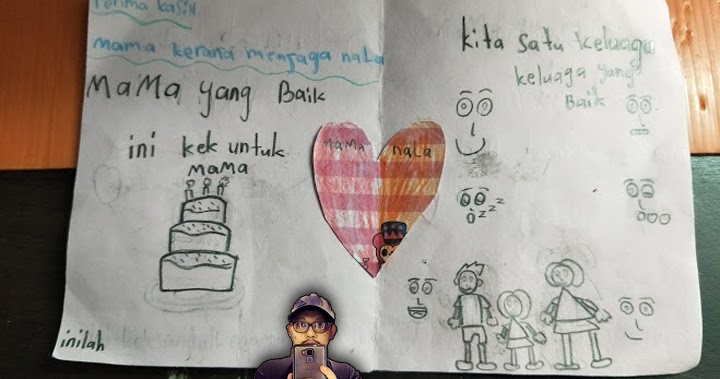 Terima kasih
mama kerana menjaga nala
mama yang Baik
ini kek untuk
mama
mama
nala
kita satu keluaga
keluaga yang
Baik
zzz
inilah